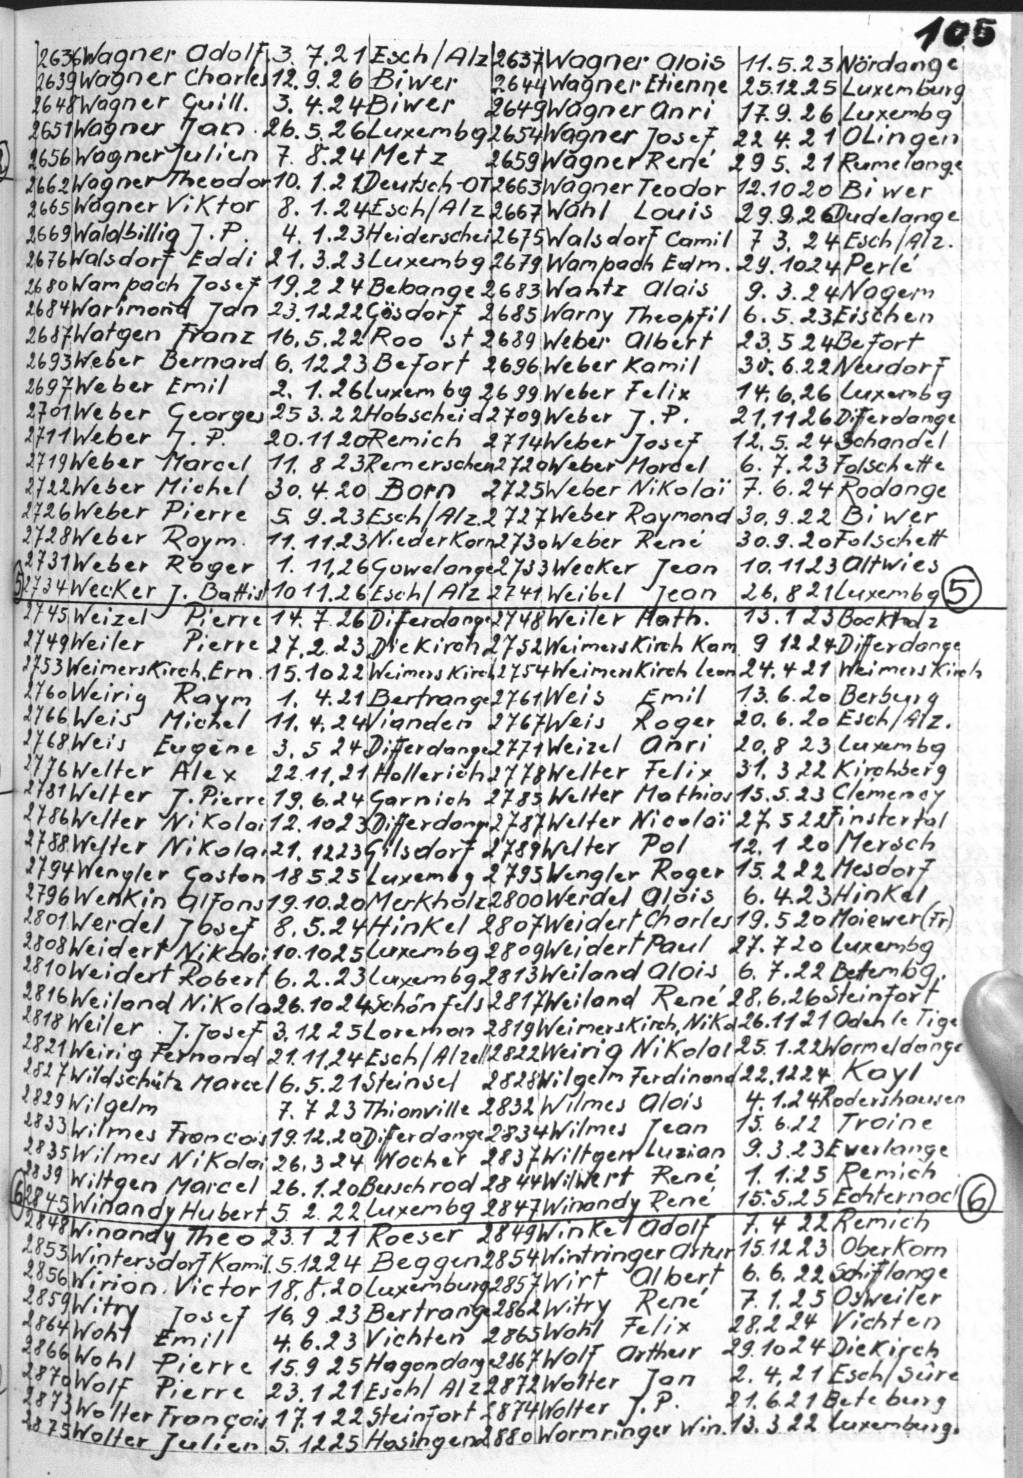 105
2636 Wagner Adolf 3. 7. 21 Esch/Alz 2637 Wagner Alois 11. 5. 23 Nördange
2639 Wagner Charles 12. 9. 26 Biwer 2644 Wagner Etienne 25.12.25 Luxemburg
2648 Wagner Guill. 3. 4. 24 Biwer 2649 Wagner Anri 17. 9. 26 Luxembg
2651 Wagner Jan. 26. 5. 26 Luxembg 2654 Wagner Josef 22 4. 21 Olingen
2656 Wagner Julien 7. 8. 24 Metz 2659 Wagner René 29 5. 21 Rumelange
2662 Wagner Theodor 10. 1. 21 Deutsch-OT 2663 Wagner Teodor 12.10 20 Biwer
2665 Wagner Viktor 8. 1. 24 Esch/Alz 2667 Wahl Louis 29. 9. 26 Dudelange
2669 Waldbillig J. P. 4. 1. 23 Heiderschei 2675 Walsdorf Camil 7 3. 24 Esch/Alz.
2676 Walsdorf Eddi 21. 3. 23 Luxembg 2679 Wampach Edm. 29. 10 24 Perlé
2680 Wampach Josef 19. 2. 24 Bebange 2683 Wantz Alais 9. 3. 24 Nagem
2684 Warimond Jan 23. 12 22 Gösdorf 2685 Warny Theopfil 6. 5. 23 Eischen
2687 Watgen Franz 16. 5. 22 Roo st 2689 Weber Albert 23. 5 24 Befort
2693 Weber Bernard 6. 12. 23 Befort 2696 Weber Kamil 30. 6. 22 Neudorf
2697 Weber Emil 2. 1. 26 Luxembg 2699 Weber Felix 14. 6. 26 Luxembg
2701 Weber Georges 25 3. 22 Hobscheid 2709 Weber J. P. 21. 11 26 Diferdange
2711 Weber J. P. 20. 11 20 Remich 2714 Weber Josef 12. 5. 24 Schandel
2719 Weber Marcel 11. 8 23 Remerschen 2720 Weber Marcel 6. 7. 23 Folschette
2722 Weber Michel 30. 4. 20 Born 2725 Weber Nikolaï 7. 6. 24 Rodange
2726 Weber Pierre 5. 9. 23 Esch/Alz. 2727 Weber Raymond 30. 9. 22 Biwer
2728 Weber Raym. 11. 11. 23 Niederkorn 2730 Weber René 30. 9. 20 Folschett
2731 Weber Roger 1. 11. 26 Guwelange 2733 Wecker Jean 10. 11 23 Altwies
5 2734 Wecker J. Battis 10 11. 26 Esch/Alz 2741 Weibel Jean 26. 8 21 Luxembg 5
2745 Weizel Pierre 14. 7. 26 Diferdange 2748 Weiler Math. 13. 1 23 Bockholz
2749 Weiler Pierre 27. 2. 23 Diekirch 2752 Weimerskirch Kam 9 12 24 Differdange
2753 Weimerskirch, Ern. 15. 10 22 Weimerskirch 2754 Weimerskirch Leon 24. 4 21 Weimerskirch
2760 Weirig Raym 1. 4. 21 Bertrange 2761 Weis Emil 13. 6. 20 Berburg
2766 Weis Michel 11. 4. 24 Vianden 2767 Weis Roger 20. 6. 20 Esch/Alz.
2768 Weis Eugène 3. 5 24 Differdange 2771 Weizel Anri 20. 8 23 Luxembg
2776 Welter Alex 22. 11. 21 Hollerich 2778 Welter Felix 31. 3. 22 Kirchberg
2781 Welter J. Pierre 19. 6. 24 Garnich 2785 Welter Mathias 15. 5. 23 Clemency
2786 Welter Nikolai 12. 10 23 Differdang 2787 Welter Nicolaï 27. 5 22 Finstertal
2788 Welter Nikolai 21. 12 23 Gilsdorf 2789 Welter Pol 12. 1 20 Mersch
2794 Wengler Gaston 18 5. 25 Luxembg 2795 Wengler Roger 15. 2. 22 Mesdorf
2796 Wenkin Alfons 19. 10. 20 Merkholz 2800 Werdel Alois 6. 4. 23 Hinkel
2801 Werdel Josef 8. 5. 24 Hinkel 2807 Weidert Charles 19. 5 20 Moiewer (Fr)
2808 Weidert Nikolai 10. 10 25 Luxembg 2809 Weidert Paul 27. 7 20 Luxembg
2810 Weidert Robert 6. 2. 23 Luxembg 2813 Weiland Alois 6. 7. 22 Betembg.
2816 Weiland Nikola 26. 10 24 Schönfels 2817 Weiland René 28. 6. 26 Steinfort
2818 Weiler J. Josef 3. 12 25 Loreman 2819 Weimerskirch, Nika 26. 11 21 Oden le Tige
2821 Weirig Fernand 21. 11. 24 Esch/Alzett 2822 Weirig Nikolai 25. 1. 22 Wormeldange
2827 Wildschütz Marcel 6. 5. 21 Steinsel 2828 Wilgelm Ferdinand 22. 12 24 Kayl
2829 Wilgelm 7. 7 23 Thionville 2832 Wilmes Alois 4. 1. 24 Rodershausen
2833 Wilmes Francois 19. 12. 20 Diferdange 2834 Wilmes Jean 15. 6. 22 Troine
2835 Wilmes Nikolai 26. 3 24 Wocher 2837 Wiltgen Luzian 9. 3. 23 Everlange
2839 Wiltgen Marcel 26. 1. 20 Buschrod 2844 Wilwert René 1. 1. 25 Remich
6 2845 Winandy Hubert 5. 2. 22 Luxembg 2847 Winandy René 15. 5. 25 Echternach 6
2848 Winandy Theo 23. 1 21 Roeser 2849 Winkel Adolf 7. 4 22 Remich
2853 Wintersdorf Kamil. 5. 12 24 Beggen 2854 Wintringer Artur 15. 12 23 Oberkorn
2856 Wirion. Victor 18. 8. 20 Luxemburg 2857 Wirt Albert 6. 6. 22 Schiflange
2859 Witry Josef 16. 9. 23 Bertrange 2862 Witry René 7. 1. 25 Osweiler
2864 Wohl Emil 4. 6. 23 Vichten 2865 Wohl Felix 28. 2 24 Vichten
2866 Wohl Pierre 15. 9 25 Hagondang 2867 Wolf Arthur 29. 10 24 Diekirch
2870 Wolf Pierre 23. 1 21 Esch/Alz 2872 Wolter Jan 2. 4. 21 Esch/Sûre
2873 Wolter François 17. 1 22 Steinfort 2874 Wolter J. P. 21. 6. 21 Beteburg
2875 Wolter Julien 5. 12 25 Hosingen 2880 Wormringer Win. 13. 3 22 Luxemburg.